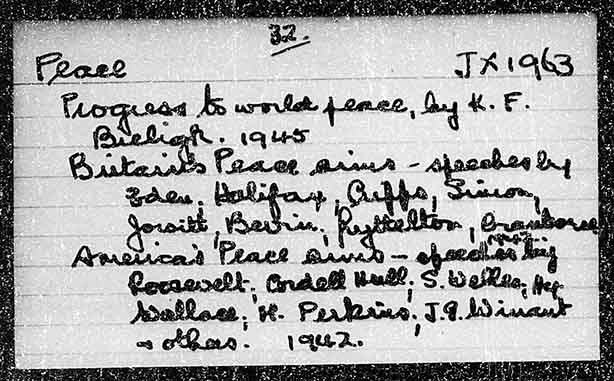 32.
Peace JX1963
Progress to world peace, by K. F.
Bieligk. 1945
Britain's Peace aims - speeches by
Eden, Halifax, Cripps, Simon,
Jowitt, Bevin, Lyttelton, Cranborne
America's Peace aims - speeches by
Roosevelt, Cordell Hull, S. Welles, Hy
Wallace, H. Perkins, J.G. Winant
& others. 1942.